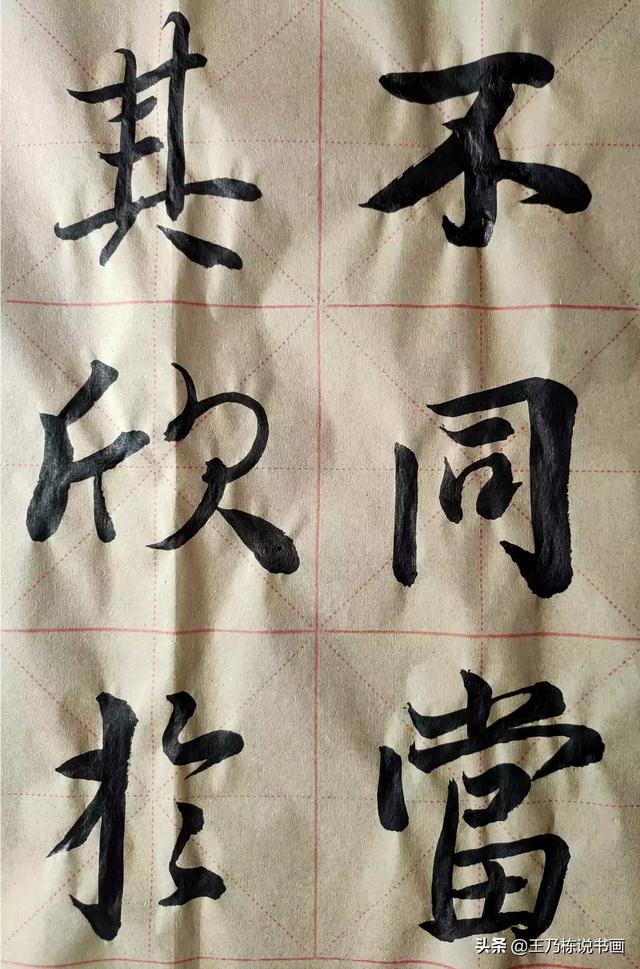 不同當
其欣於
头条 @王乃栋说书画